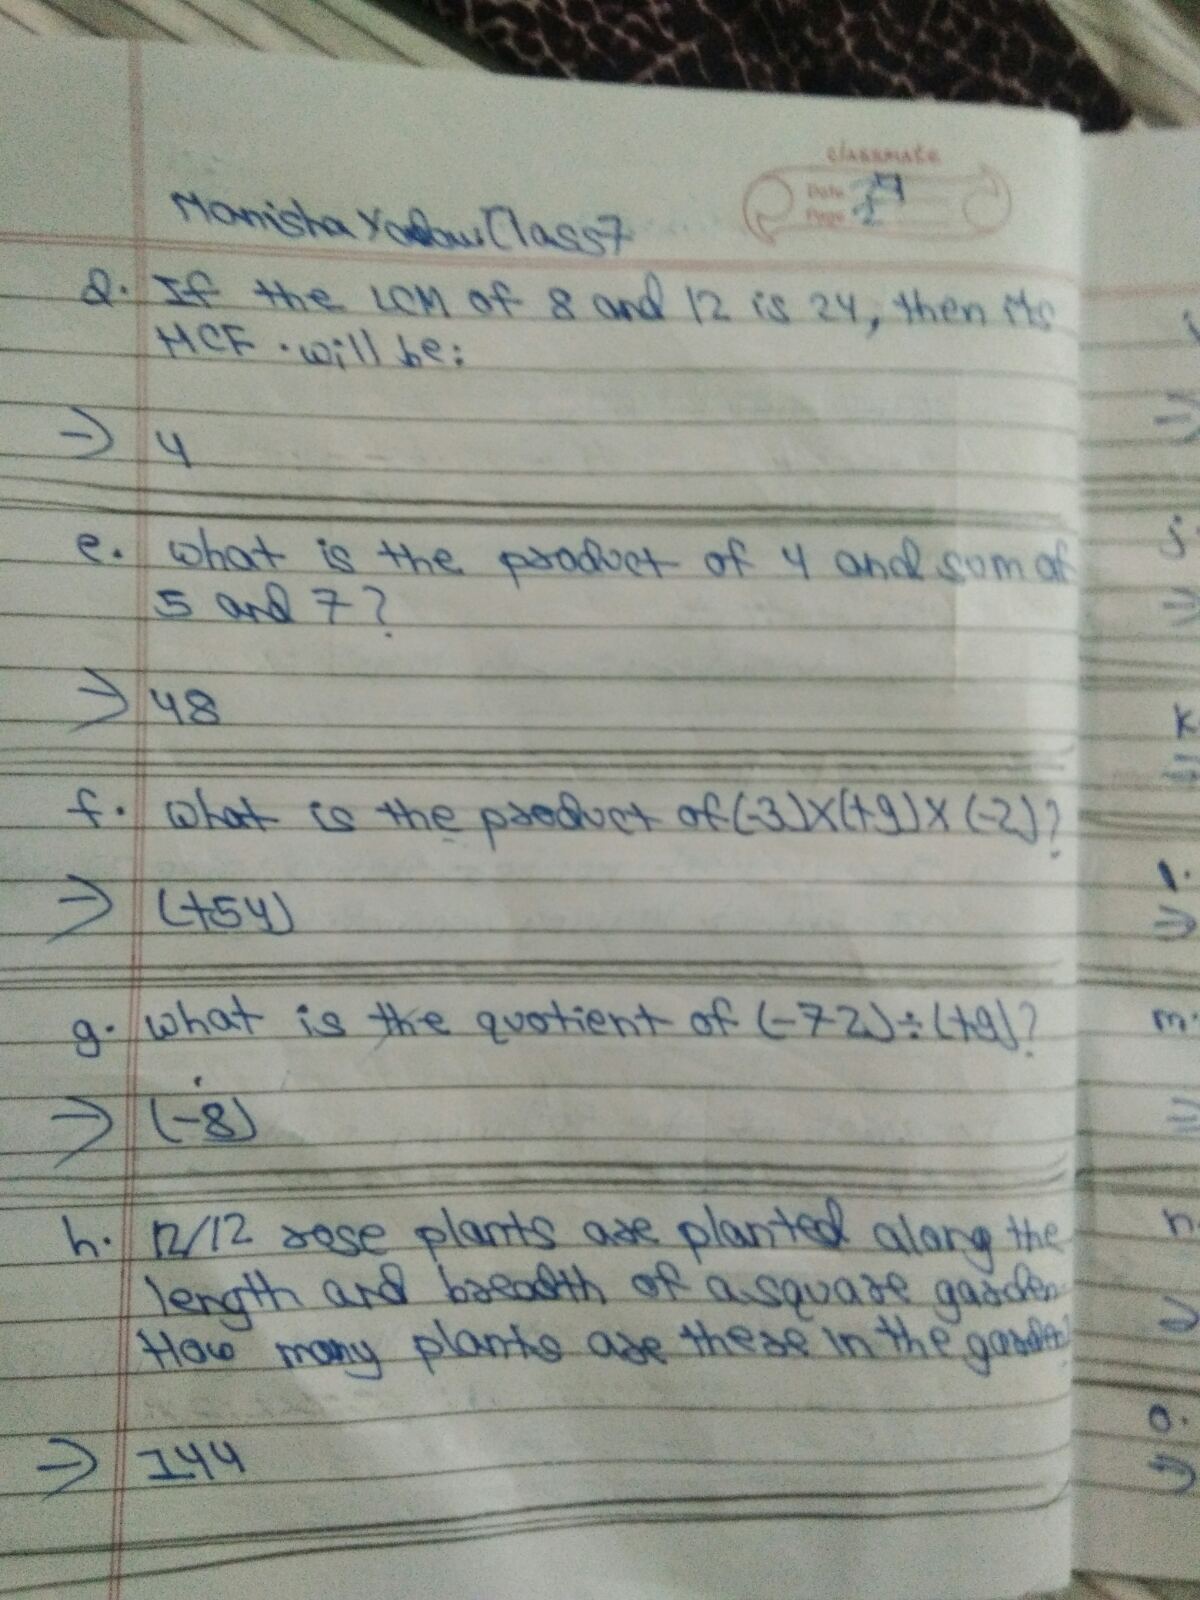 classmate
Date
Page
Manisha Yadav Class 7
d. If the LCM of 8 and 12 is 24, then its
HCF . will be:
⇒ 4
e. What is the product of 4 and sum of
5 and 7?
⇒ 48
f. What is the product of (-3)×(+9)× (-2)?
⇒ (+54)
g. What is the quotient of (-72)÷(+9)?
⇒ (-8)
h. 12/12 rose plants are planted along the
length and breadth of a square garden.
How many plants are there in the garden?
⇒ 144
j.
k
l.
m.
n.
o.